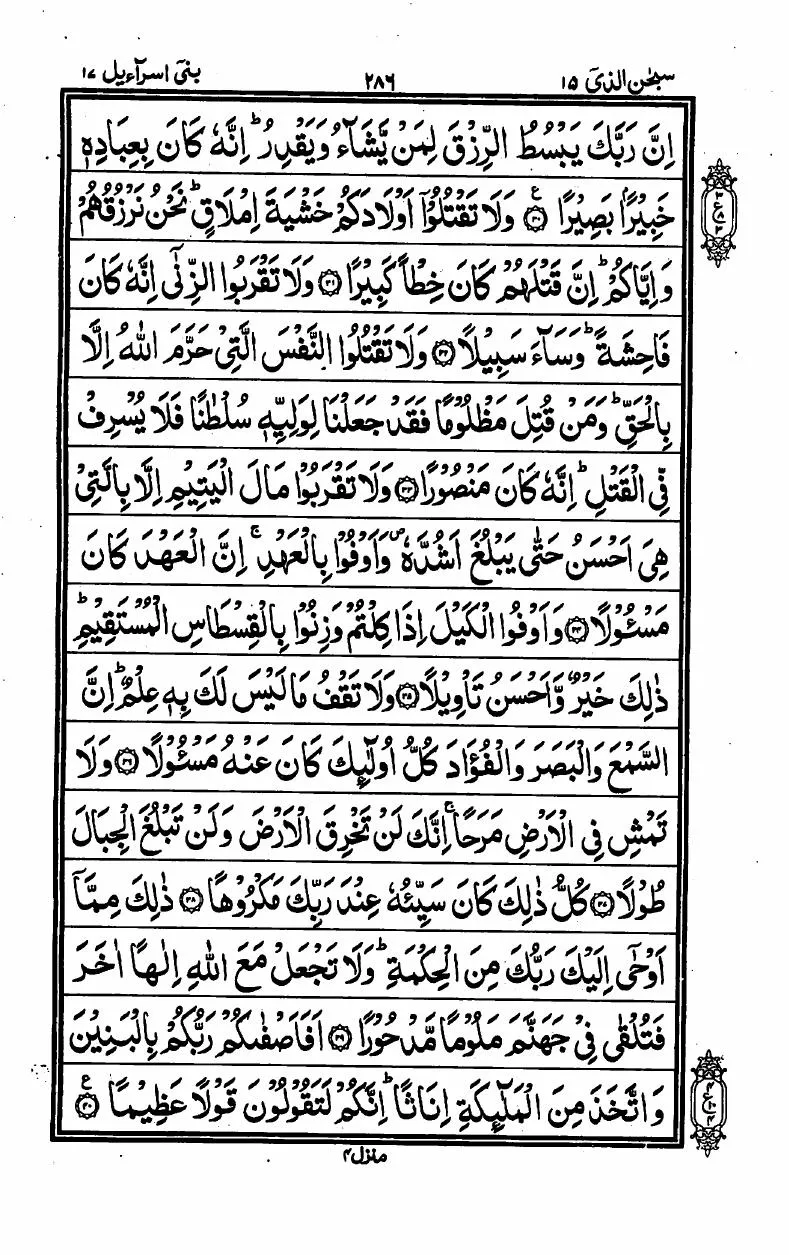 سبحٰن الذی ۱۵ ۲۸۶ بنی اسرآءیل ۱۷
اِنَّ رَبَّكَ یَبْسُطُ الرِّزْقَ لِمَنْ یَّشَآءُ وَیَقْدِرُ ؕ اِنَّهٗ كَانَ بِعِبَادِهٖ
خَبِیْرًۢا بَصِیْرًا ۳۰ ع وَلَا تَقْتُلُوْۤا اَوْلَادَكُمْ خَشْیَةَ اِمْلَاقٍ ؕ نَحْنُ نَرْزُقُهُمْ
وَاِیَّاكُمْ ؕ اِنَّ قَتْلَهُمْ كَانَ خِطْاً كَبِیْرًا ۳۱ وَلَا تَقْرَبُوا الزِّنٰۤی اِنَّهٗ كَانَ
فَاحِشَةً ؕ وَسَآءَ سَبِیْلًا ۳۲ وَلَا تَقْتُلُوا النَّفْسَ الَّتِیْ حَرَّمَ اللّٰهُ اِلَّا
بِالْحَقِّ ؕ وَمَنْ قُتِلَ مَظْلُوْمًا فَقَدْ جَعَلْنَا لِوَلِیِّهٖ سُلْطٰنًا فَلَا یُسْرِفْ
فِّی الْقَتْلِ ؕ اِنَّهٗ كَانَ مَنْصُوْرًا ۳۳ وَلَا تَقْرَبُوْا مَالَ الْیَتِیْمِ اِلَّا بِالَّتِیْ
هِیَ اَحْسَنُ حَتّٰی یَبْلُغَ اَشُدَّهٗ ۪ وَاَوْفُوْا بِالْعَهْدِ ۚ اِنَّ الْعَهْدَ كَانَ
مَسْـُٔوْلًا ۳۴ وَاَوْفُوا الْكَیْلَ اِذَا كِلْتُمْ وَزِنُوْا بِالْقِسْطَاسِ الْمُسْتَقِیْمِ ؕ
ذٰلِكَ خَیْرٌ وَّاَحْسَنُ تَاْوِیْلًا ۳۵ وَلَا تَقْفُ مَا لَیْسَ لَكَ بِهٖ عِلْمٌ ؕ اِنَّ
السَّمْعَ وَالْبَصَرَ وَالْفُؤَادَ كُلُّ اُولٰٓىِٕكَ كَانَ عَنْهُ مَسْـُٔوْلًا ۳۶ وَلَا
تَمْشِ فِی الْاَرْضِ مَرَحًا ۚ اِنَّكَ لَنْ تَخْرِقَ الْاَرْضَ وَلَنْ تَبْلُغَ الْجِبَالَ
طُوْلًا ۳۷ كُلُّ ذٰلِكَ كَانَ سَیِّئُهٗ عِنْدَ رَبِّكَ مَكْرُوْهًا ۳۸ ذٰلِكَ مِمَّاۤ
اَوْحٰۤی اِلَیْكَ رَبُّكَ مِنَ الْحِكْمَةِ ؕ وَلَا تَجْعَلْ مَعَ اللّٰهِ اِلٰهًا اٰخَرَ
فَتُلْقٰی فِیْ جَهَنَّمَ مَلُوْمًا مَّدْحُوْرًا ۳۹ اَفَاَصْفٰىكُمْ رَبُّكُمْ بِالْبَنِیْنَ
وَاتَّخَذَ مِنَ الْمَلٰٓىِٕكَةِ اِنَاثًا ؕ اِنَّكُمْ لَتَقُوْلُوْنَ قَوْلًا عَظِیْمًا ۴۰ ع
منزل۴